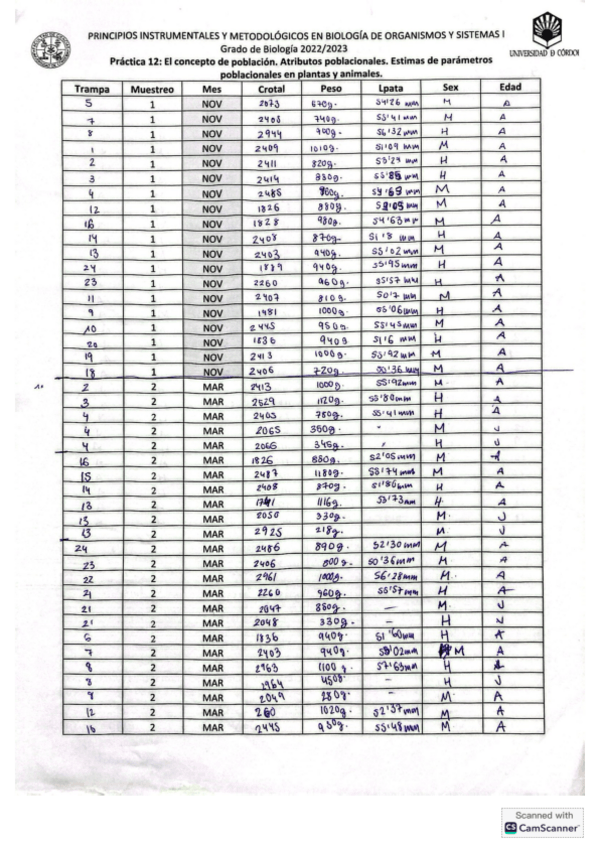 PRINCIPIOS INSTRUMENTALES Y METODOLÓGICOS EN BIOLOGÍA DE ORGANISMOS Y SYSTEMAS I
Grado de Biología 2022/2023
UNIVERSIDAD D CÓRDOBA
Práctica 12: El concepto de población. Atributos poblacionales. Estimas de parámetros
poblacionales en plantas y animales.
Trampa Muestreo Mes Crotal Peso Lpata Sex Edad
5 1 NOV 2073 670g. 54'26 mm M A
7 1 NOV 2408 740g. 55'41 mm M A
8 1 NOV 2944 700g. 56'32 mm H A
1 1 NOV 2409 1010g. 51'09 mm M A
2 1 NOV 2411 820g. 55'29 mm H A
3 1 NOV 2414 830g. 55'85 mm H A
4 1 NOV 2485 860g. 59'69 mm M A
12 1 NOV 1826 880g. 52'05 mm M A
16 1 NOV 1828 980g. 54'63 mm M A
14 1 NOV 2408 870g. 51'8 mm H A
13 1 NOV 2403 940g. 55'02 mm M A
24 1 NOV 1889 940g. 55'95 mm H A
23 1 NOV 2260 960g. 55'57 mm H A
11 1 NOV 2407 810g. 50'7 mm M A
9 1 NOV 1981 1000g. 55'06 mm H A
10 1 NOV 2445 950g. 55'45 mm M A
20 1 NOV 1836 940g 51'6 mm H A
19 1 NOV 2413 1000g. 55'92 mm M A
18 1 NOV 2406 720g. 50'36 mm M A
2 2 MAR 2413 1000g. 55'92mm M A
3 2 MAR 2529 1120g. 55'80mm H A
4 2 MAR 2405 750g. 55'41mm H A
4 2 MAR 2065 350g. - M J
4 2 MAR 2066 345g. H J
16 2 MAR 1826 880g. 52'05mm M A
15 2 MAR 2487 1180g. 58'74mm M A
14 2 MAR 2408 870g. 51'86mm H A
18 2 MAR 1116g. 53'73mm H A
15 2 MAR 2050 330g. M J
13 2 MAR 2925 218g. M J
24 2 MAR 2486 890g. 52'30 mm M A
23 2 MAR 2406 800g. 50'36mm M A
22 2 MAR 2961 1000g. 56'28mm M A
21 2 MAR 2260 960g. 55'57mm H A
21 2 MAR 2047 880g. - M J
21 2 MAR 2048 330g. - H J
6 2 MAR 1836 940g. 51'60mm H A
7 2 MAR 2403 940g. 55'02mm M A
8 2 MAR 2963 1100 g. 57'63mm H A
8 2 MAR 1964 450g. - H J
9 2 MAR 2049 280g. - M A
12 2 MAR 260 1020g. 52'37mm M A
16 2 MAR 2445 950g. 55'48mm M A
Scanned with
CS CamScanner